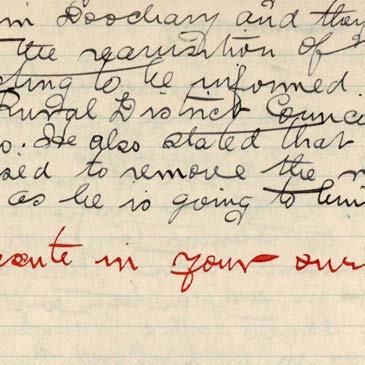 in Doochary and they
the requisition of
cting to be informed
Rural District Counci
o. He also stated that
sed to remove the
as he is going to
in your own